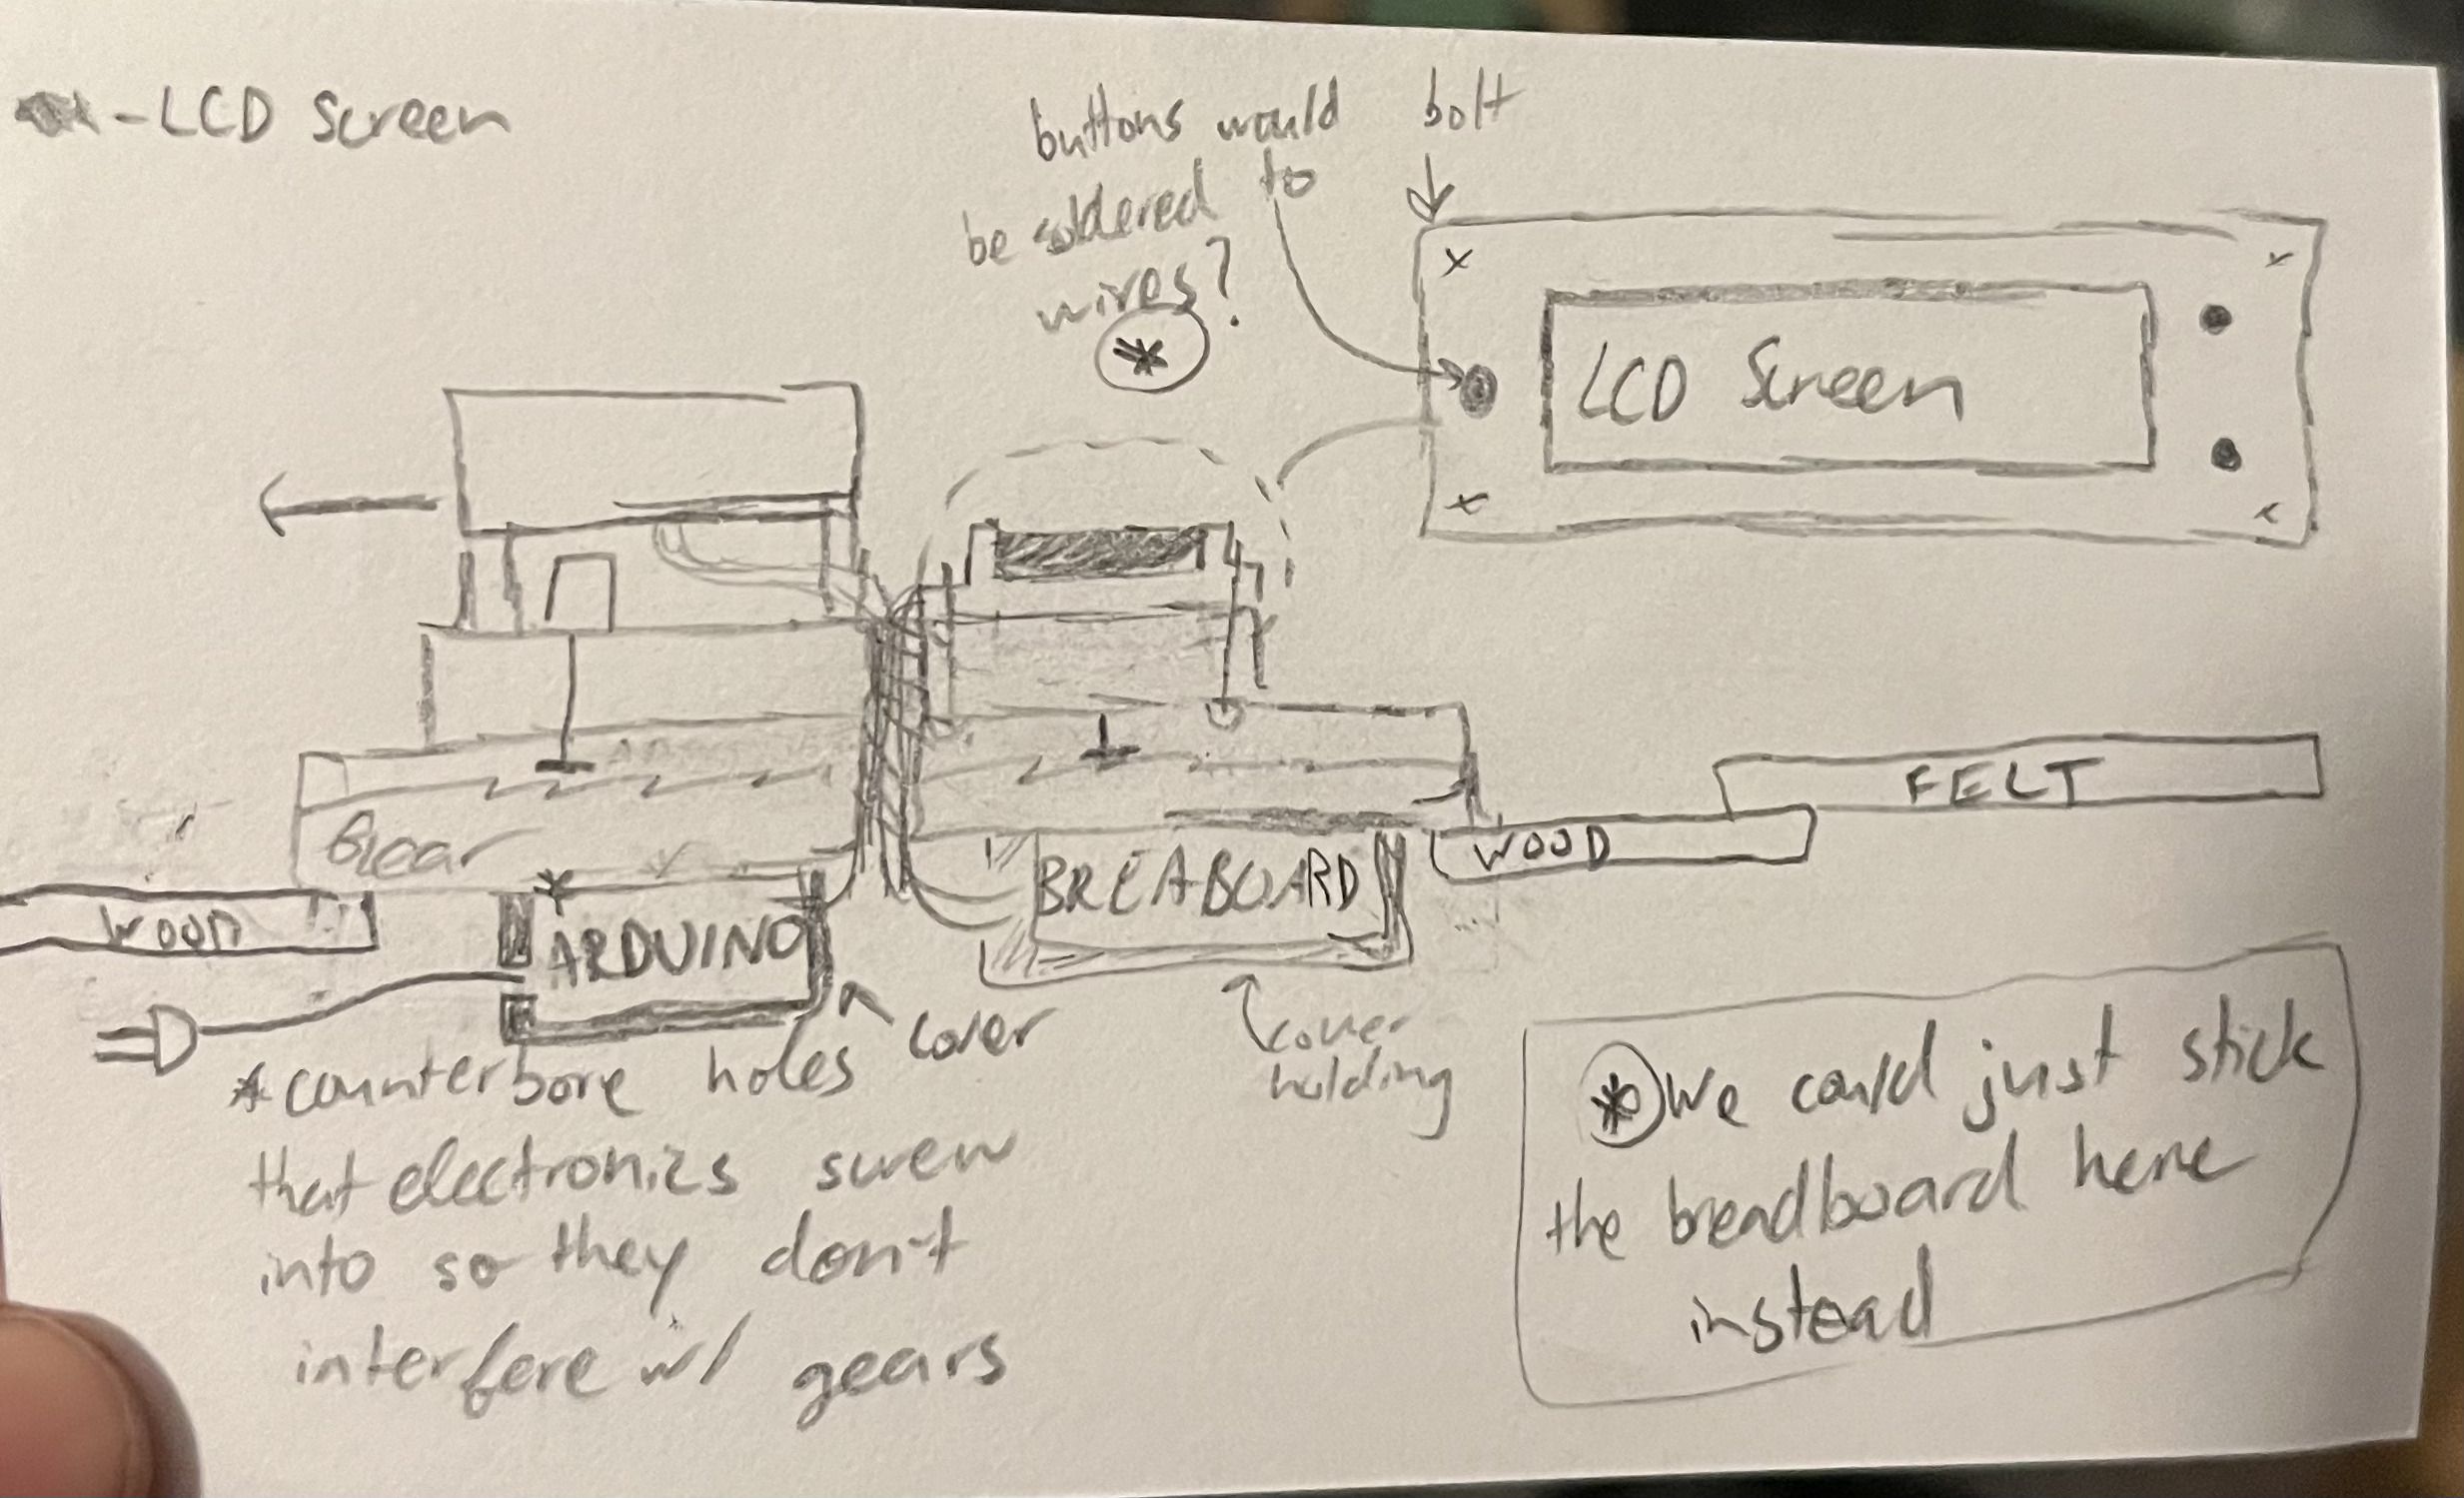 -LCD Screen
buttons would
be soldered to
wires?
*
bolt
LCD Screen
FELT
WOOD
Gear
WOOD
ARDUINO
BREABOARD
cover
cover
holding
*counterbore holes
that electronics screw
into so they don't
interfere w/ gears
* We could just stick
the breadboard here
instead